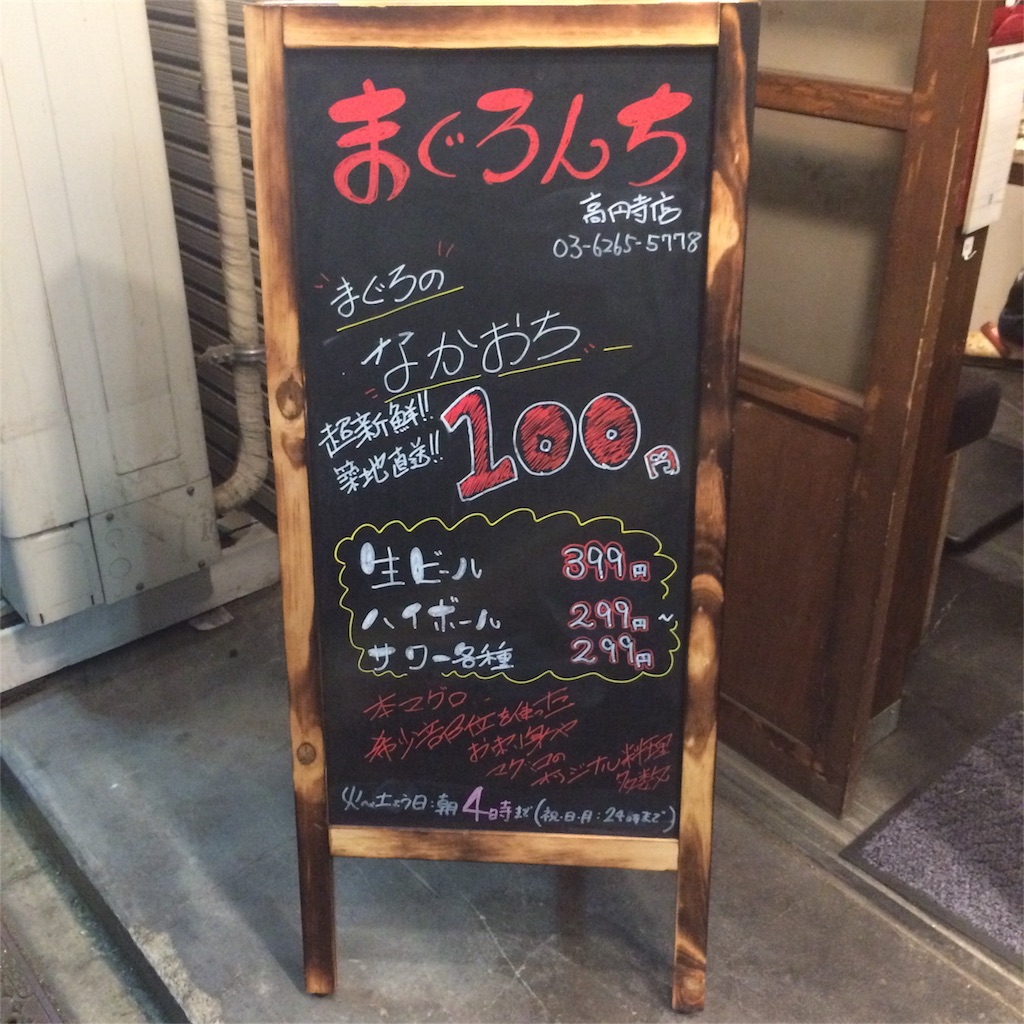 まぐろんち
高円寺店
03-6265-5778
まぐろの
なかおち
超新鮮!!
築地直送!!
100円
生ビール 399円
ハイボール 299円~
サワー各種 299円
本マグロ
希少部位を使った
お刺し身や
マグロの
オリジナル料理
多数
火~土よう日:朝4時まで(祝・日・月:24時まで)